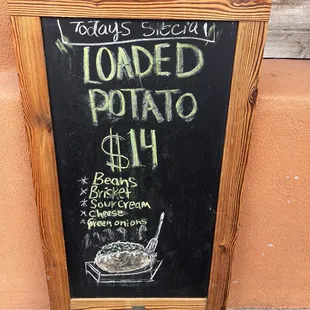 Todays Special
LOADED
POTATO
$14
* Beans
× Brisket
* Sour Cream
× Cheese
* Green onions